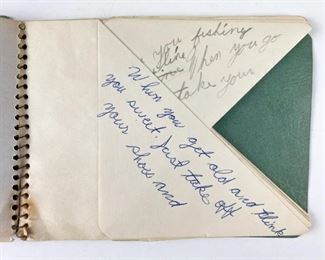 you fishing
line
When you go
take your
When you get old and think
you sweet. Just take off
your shoes and